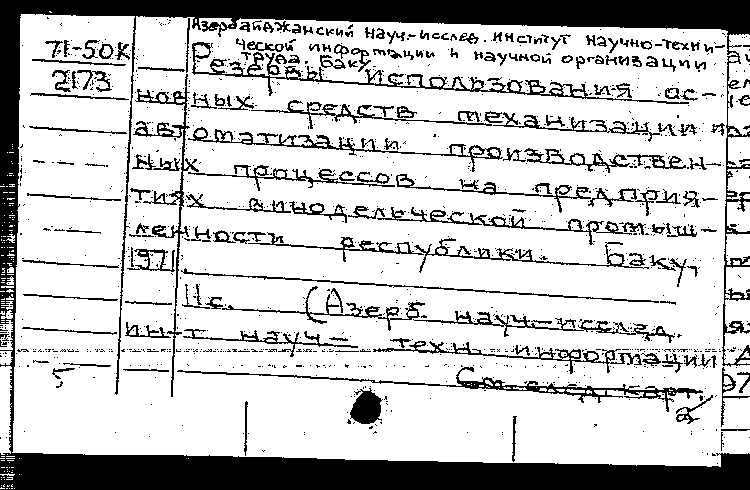 Азербайджанский науч.-исслед. институт научно-техни-
ческой информации и научной организации
труда. Баку.
71-50К
Резервы использования ос-
2173
новных средств механизации и
автоматизации производствен-
ных процессов на предприя-
тиях винодельческой промыш-
ленности республики. Баку,
1971.
11с. (Азерб. науч.-исслед.
ин-т науч.- техн. информации
См. след. карт.
5
2